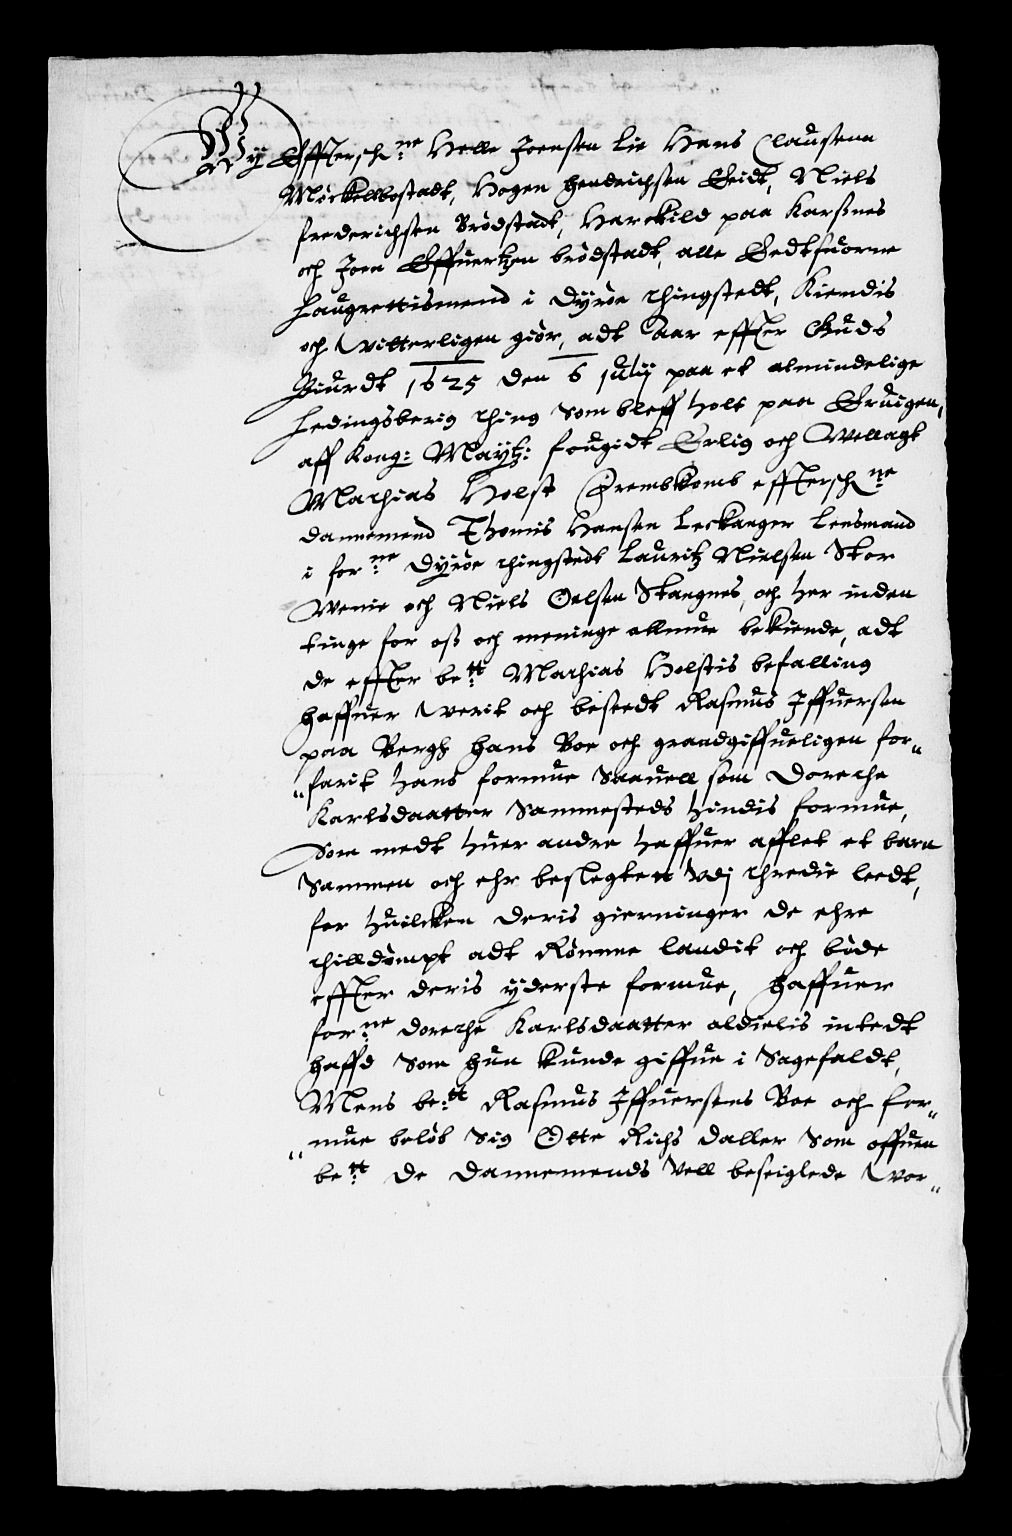 Wy Efftersch:ne Helle Joensen Lie Hans Clausenn
Möckelbostadt, Hogen Hendrichsen Eeidt, Niels
frederichsen Brödstadt, Harekild paa Karsnes
och Joen Effuertzen brödstadt, alle Eedtsuorne
Laugrettismend i Dyröe thingstedt, Kiendis
och Witterligen giör, adt Aar effter Guds
Biurdt 1625 den 6 Julij paa et almindelige
Ledingsberig thing Som bleff holt paa Gruigen,
aff Kong: Maytz: fougidt Erlig och Wellagt
Mathias Holst Frembkomb effterschne
dannemend Thomis Hansen Leckanger Lensmand
i forne Dyröe thingstedt Lauritz Nielsen Skor
Wenie och Niels Oelsen Skangnes, och her inden
tinge for oss och meninge allmue bekiende, adt
de effter be:tt Mathias Holstis befalling
haffuer Werit och beseedt Rasmus Iffuersen
paa Bergh hans Boe och grandgiffueligen for„
„farit hans formue Saauell som Dorethe
Karlsdaatter Sammesteds hindis formue,
Som medt huer andre haffuer afflet et barn
Sammen och ehr beslegtett Vdj thredie leedt,
for huilcken deris gierninger de ehre
thilldömpt adt Römme landit och böde
effter deris yderste formue, haffuer
for:ne dorethe Karlsdaatter aldielis intedt
haffd Som hun kunde giffue i Sagefaldt,
Mens be:tt Rasmus Iffuersens Boe och for„
„mue belöb Sig Otte Richs daller Som offuen
be:tt de dannemends Vell beseiglede Wor„